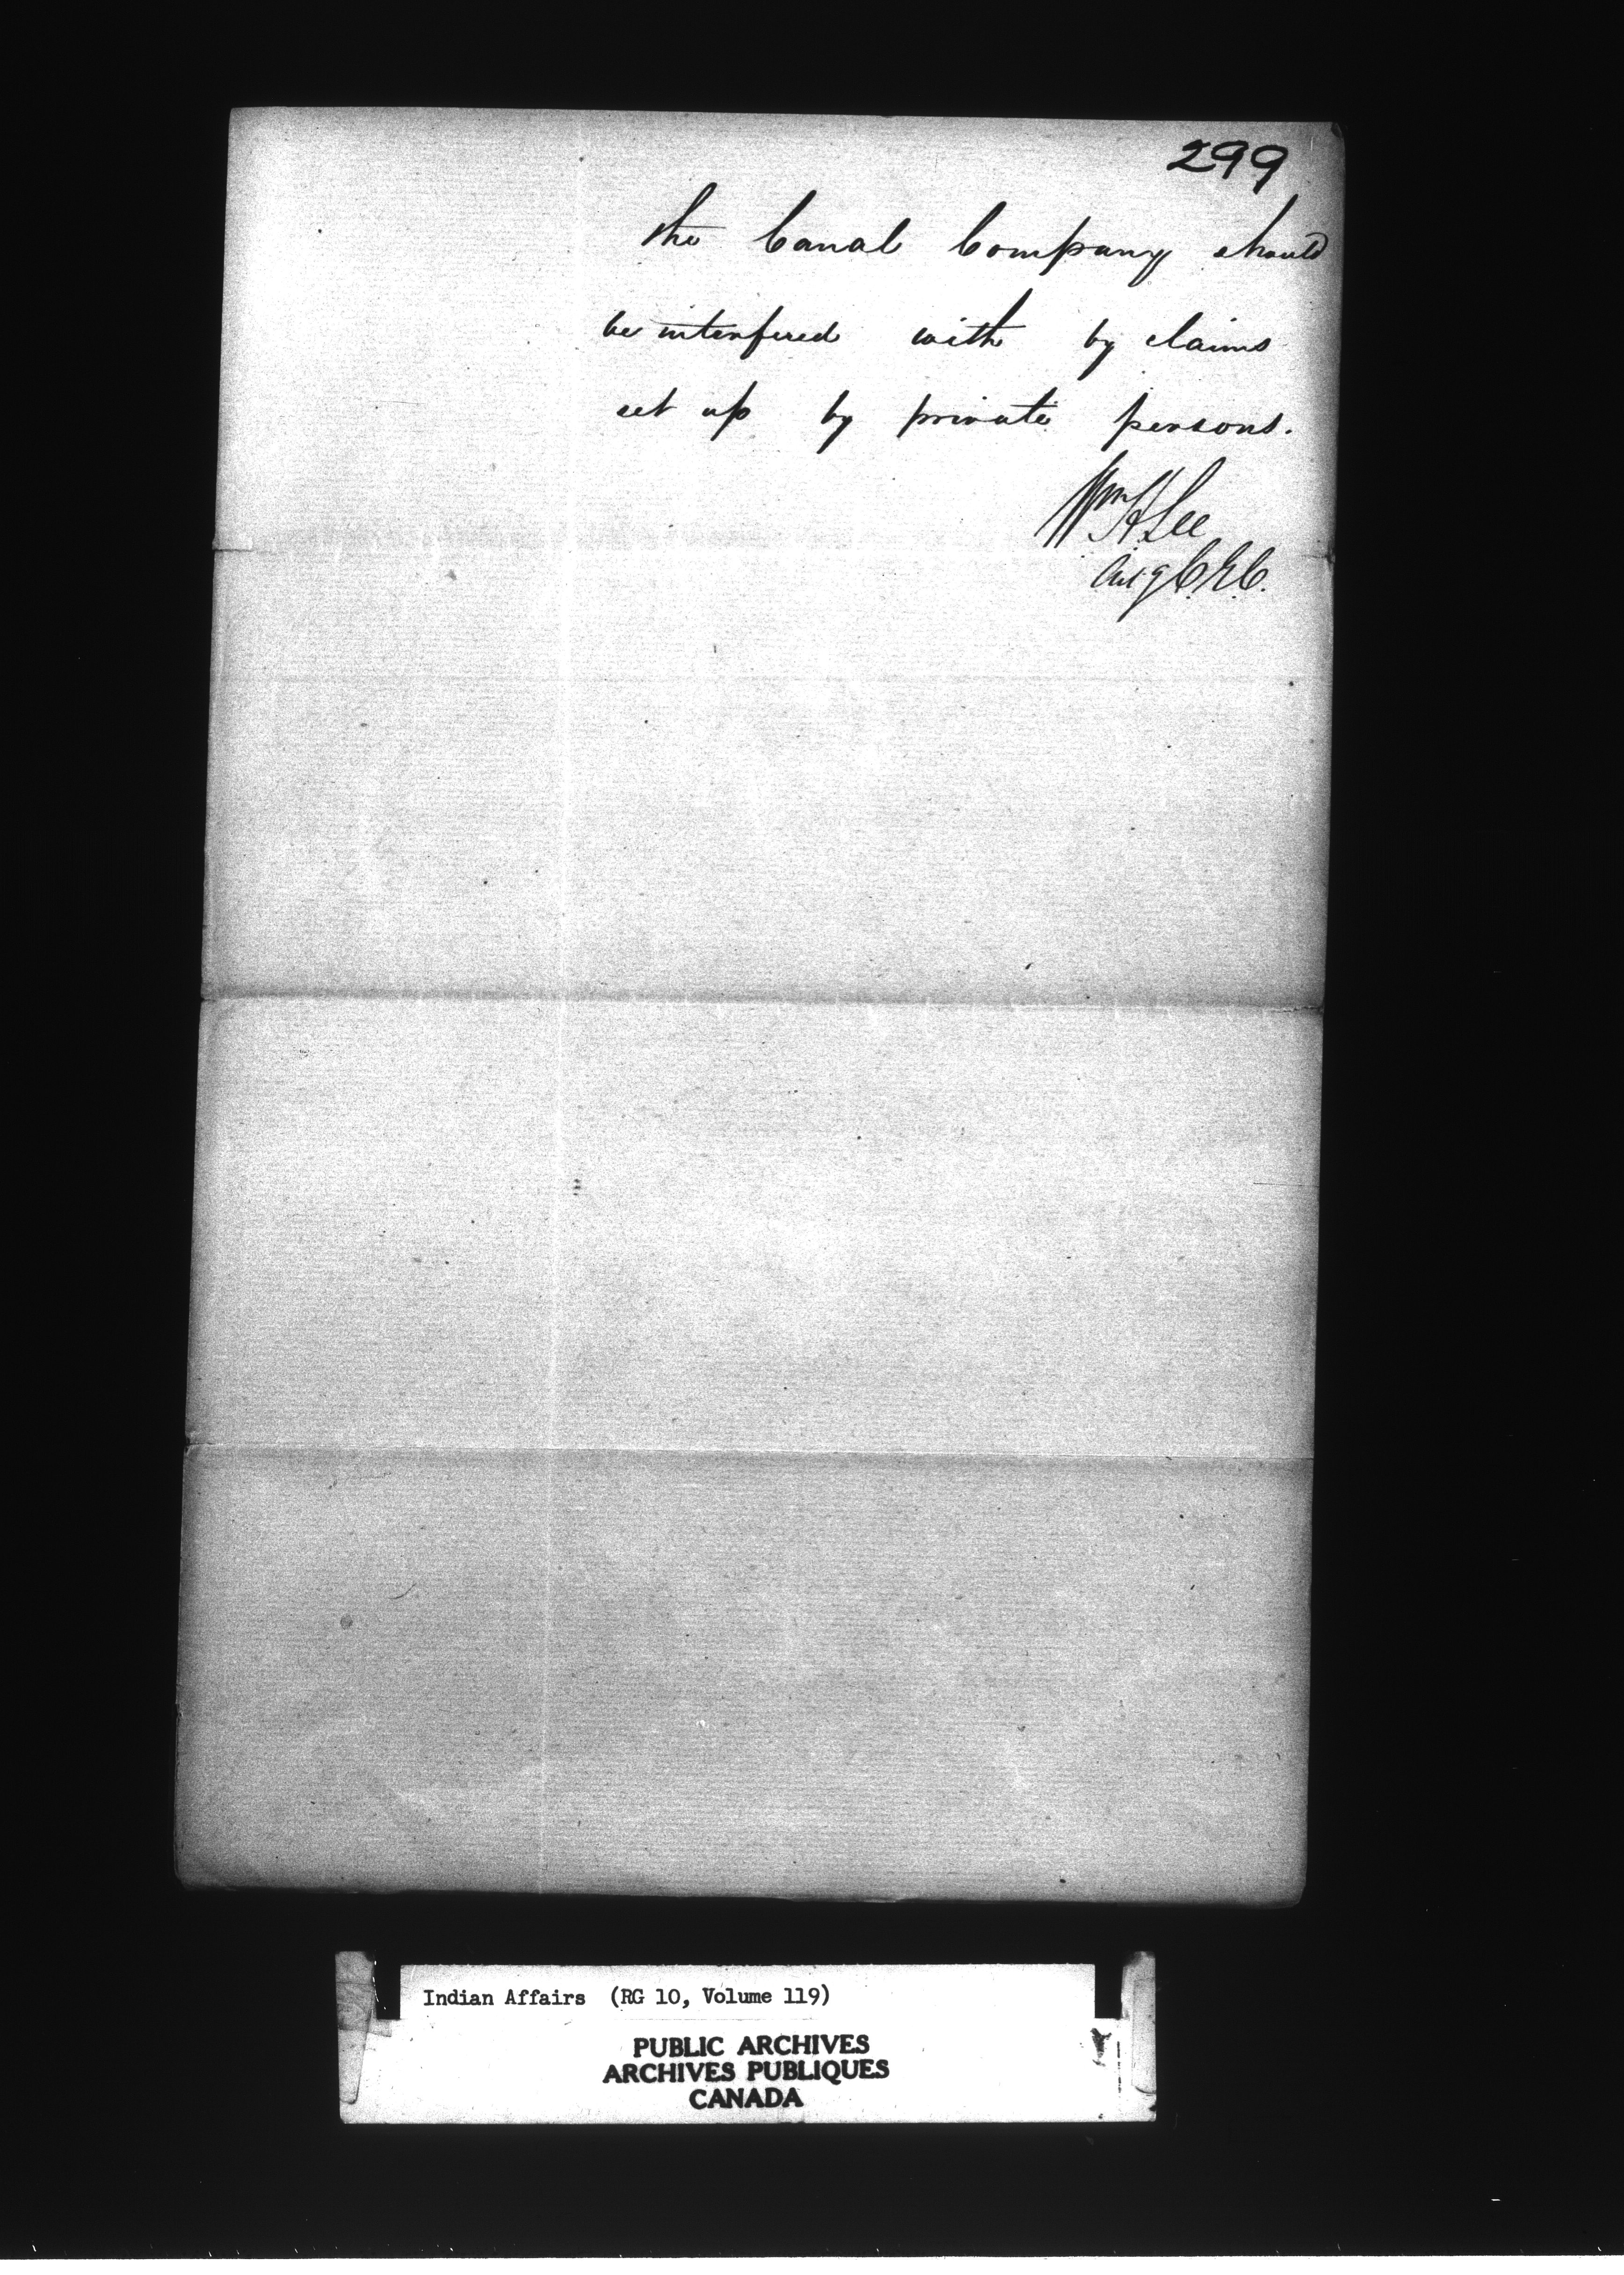 299
the Canal Company should
be interfered with by claims
set up by private persons.
Wm H Lee
Act g C.E.C.
Indian Affairs (RG 10, Volume 119)
PUBLIC ARCHIVES
ARCHIVES PUBLIQUES
CANADA